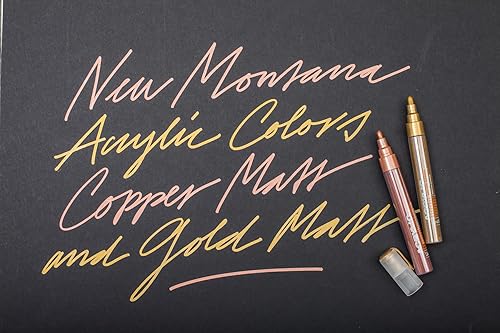 New Montana
Acrylic Colors
Copper Matt
and Gold Matt